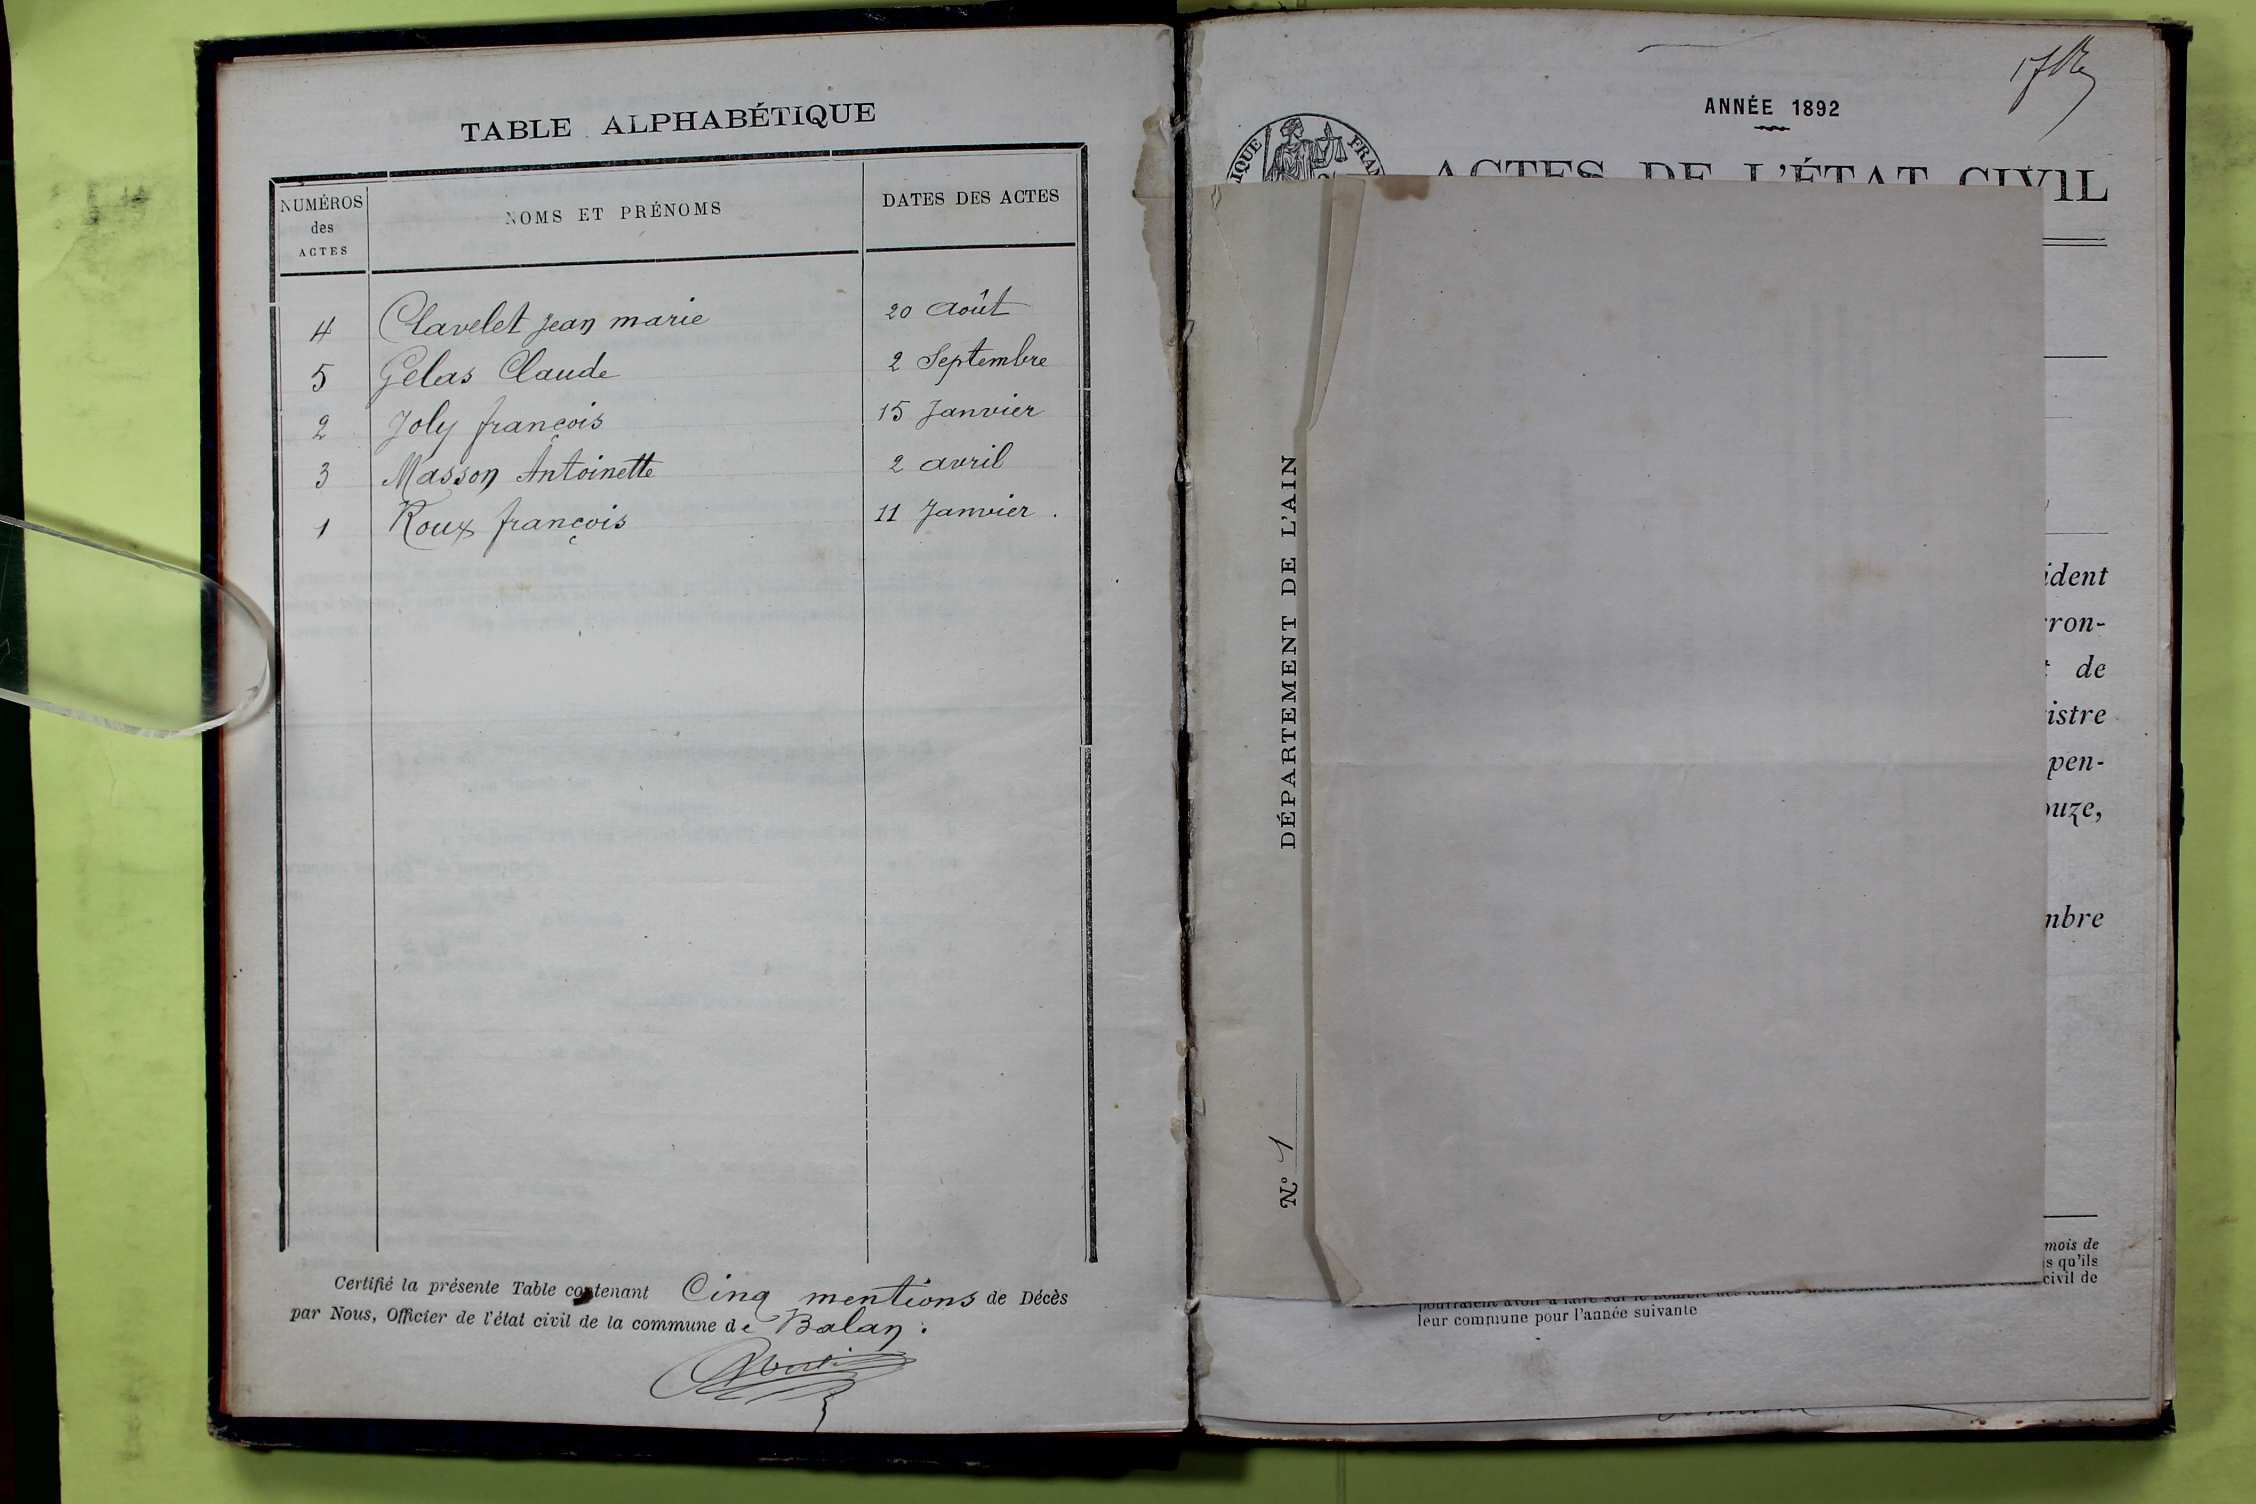 TABLE ALPHABÉTIQUE
NUMÉROS des ACTES NOMS ET PRÉNOMS DATES DES ACTES
4 Clavelet Jean marie 20 Août
5 Gelas Claude 2 Septembre
2 Joly françois 15 Janvier
3 Masson Antoinette 2 avril
1 Roux françois 11 Janvier .
Certifié la présente Table contenant Cinq mentions de Décès
par Nous, Officier de l'état civil de la commune de Balan.
ANNÉE 1892
ACTES DE L'ÉTAT CIVIL
IQUE FRAN
DÉPARTEMENT DE L'AIN
N° 1
ident
rron-
de
istre
pen-
ouze,
mbre
mois de
s qu'ils
civil de
leur commune pour l'année suivante